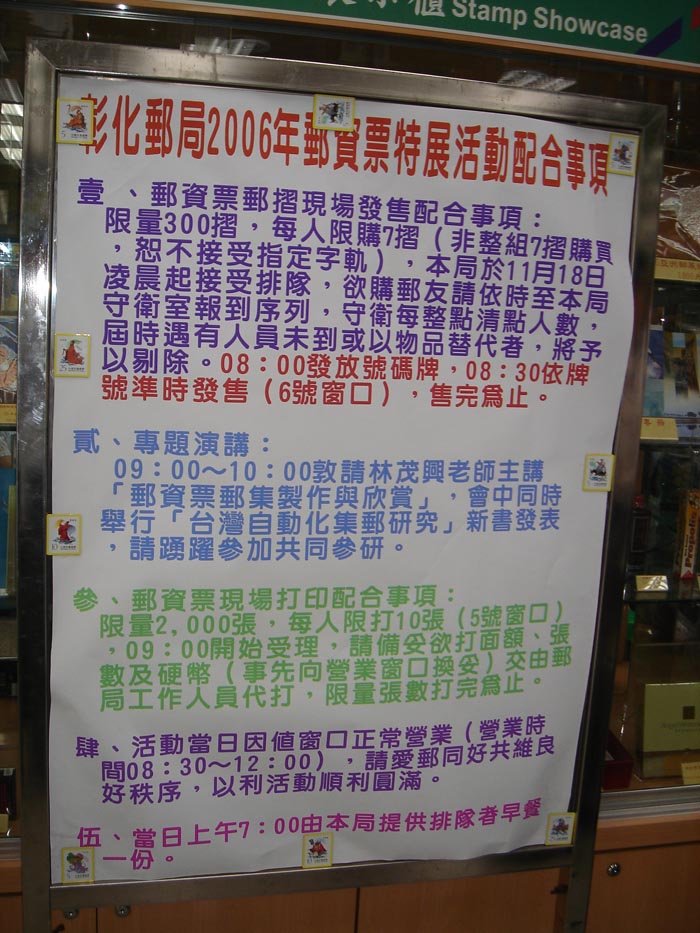 櫃 Stamp Showcase
彰化郵局2006年郵資票特展活動配合事項
壹、郵資票郵摺現場發售配合事項：
限量300摺，每人限購7摺（非整組7摺購買
，恕不接受指定字軌），本局於11月18日
凌晨起接受排隊，欲購郵友請依時至本局
守衛室報到序列，守衛每整點清點人數，
屆時遇有人員未到或以物品替代者，將予
以剔除。08：00發放號碼牌，08：30依牌
號準時發售（6號窗口），售完為止。
貳、專題演講：
09：00～10：00敦請林茂興老師主講
「郵資票郵集製作與欣賞」，會中同時
舉行「台灣自動化集郵研究」新書發表
，請踴躍參加共同參研。
參、郵資票現場打印配合事項：
限量2,000張，每人限打10張（5號窗口）
，09：00開始受理，請備妥欲打面額、張
數及硬幣（事先向營業窗口換妥）交由郵
局工作人員代打，限量張數打完為止。
肆、活動當日因值窗口正常營業（營業時
間08：30～12：00），請愛郵同好共維良
好秩序，以利活動順利圓滿。
伍、當日上午7：00由本局提供排隊者早餐
一份。